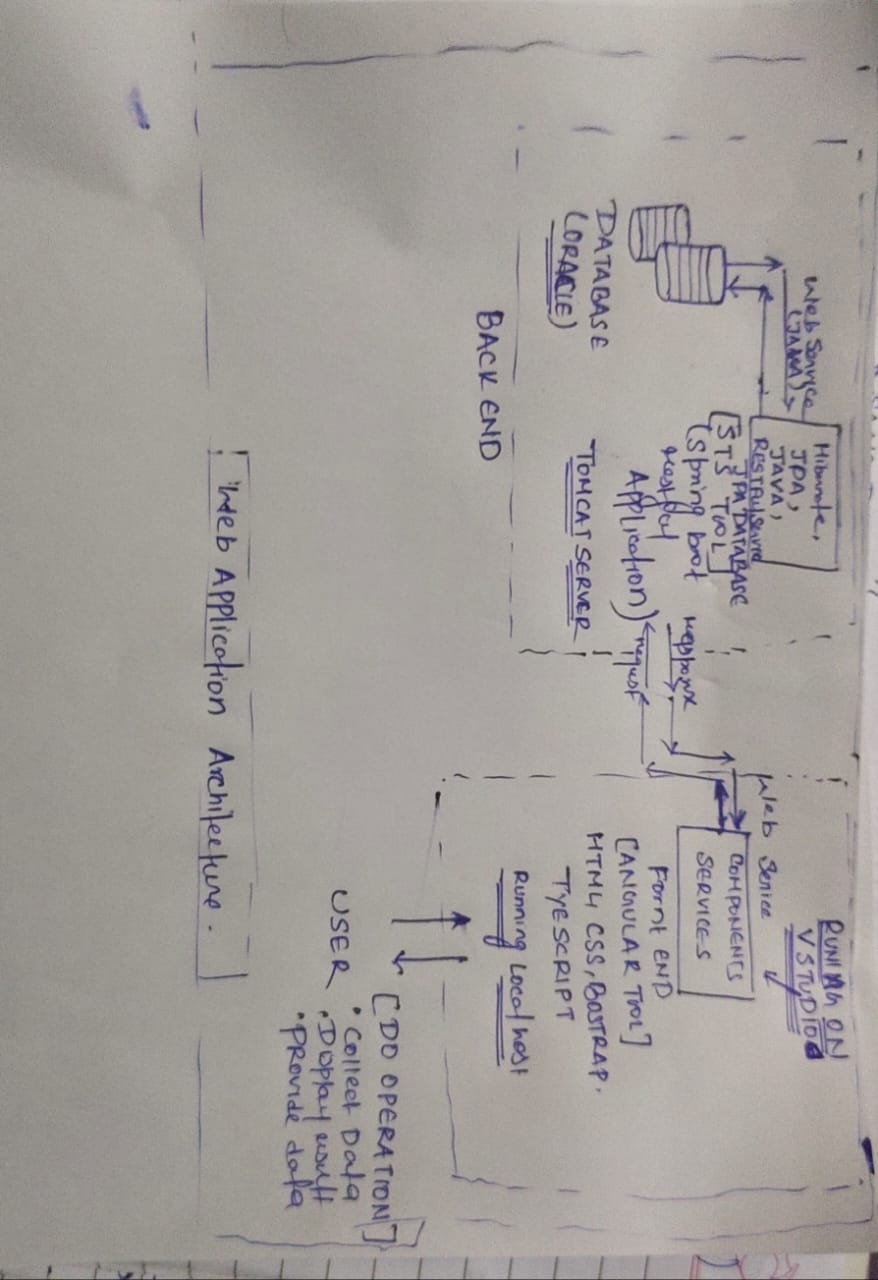 Web Service
(JAVA)
Hibernate,
JPA,
JAVA,
RESTful Service
JPA DATABASE
[STS TOOL]
(Spring boot
Restful
Application)
TOMCAT SERVER
DATABASE
(ORACLE)
BACK END
request
Web Service
RUNING ON
VSTUDIO
COMPONENTS
SERVICES
Fornt END
[ANGULAR TOOL]
HTML CSS, BOSTRAP.
TYESCRIPT
Running Localhost
USER
[DO OPERATION]
• Collect Data
• Display result
• PROVIDE data
Web Application Architecture.